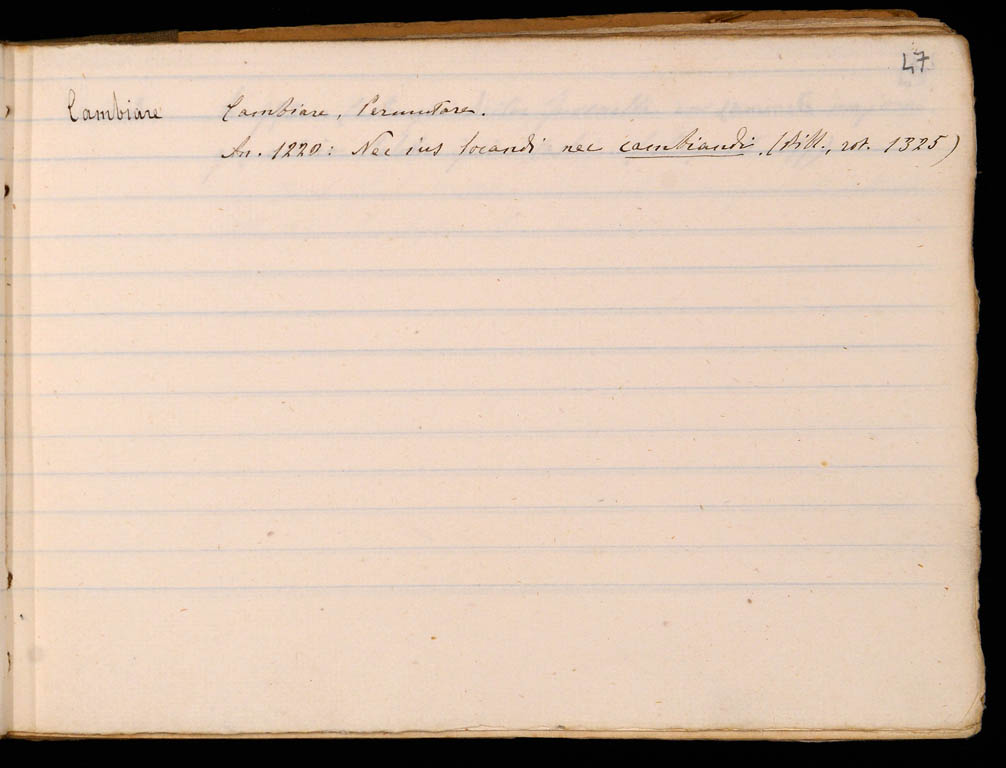 47
Cambiare Cambiare, Permutare.
An. 1220: Nec ius locandi nec cambiandi. (Vill., rot. 1325)